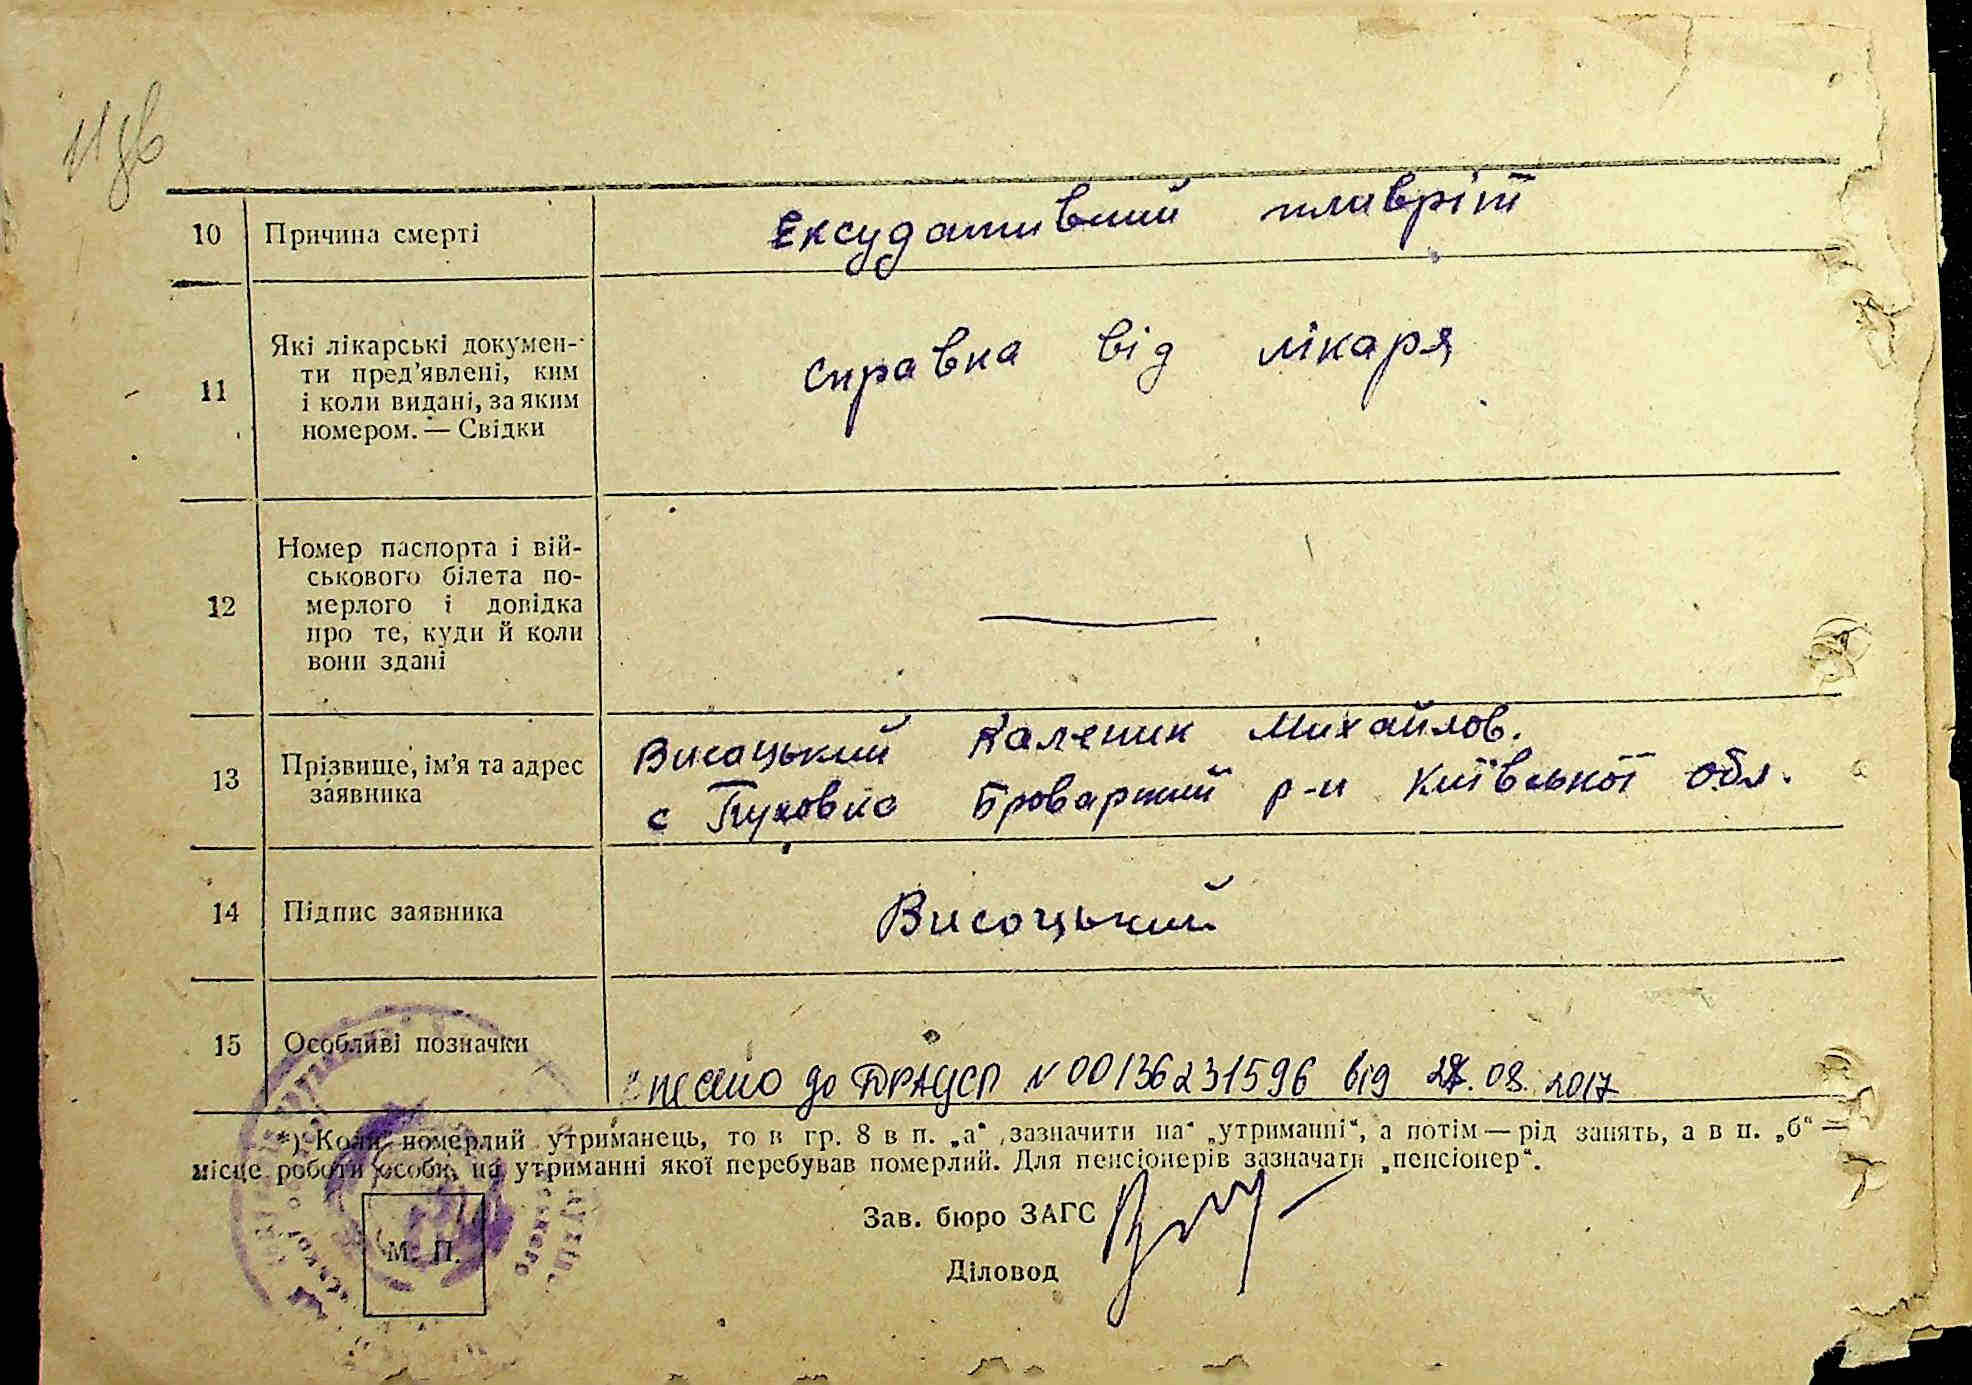 10 Причина смерті Ексудативний плаврітт
11 Які лікарські докумен-
ти пред’явлені, ким
і коли видані, за яким
номером. — Свідки
справка від лікаря
12 Номер паспорта і вій-
ськового білета по-
мерлого і довідка
про те, куди й коли
вони здані
—
13 Прізвище, ім’я та адрес
заявника
Висоцький Каленик Михайлов.
с Пуховка Броварський р-н Київської обл.
14 Підпис заявника Висоцький
15 Особливі позначки
внесено до ДРАЦСГ N 00136231596 від 08. 2017
*) Коли померлий утриманець, то в гр. 8 в п. „а“ зазначити на“ „утриманні“, а потім — рід занять, а в п. „б“ —
місце роботи особи, на утриманні якої перебував померлий. Для пенсіонерів зазначати „пенсіонер“.
Зав. бюро ЗАГС
М. П.
Діловод